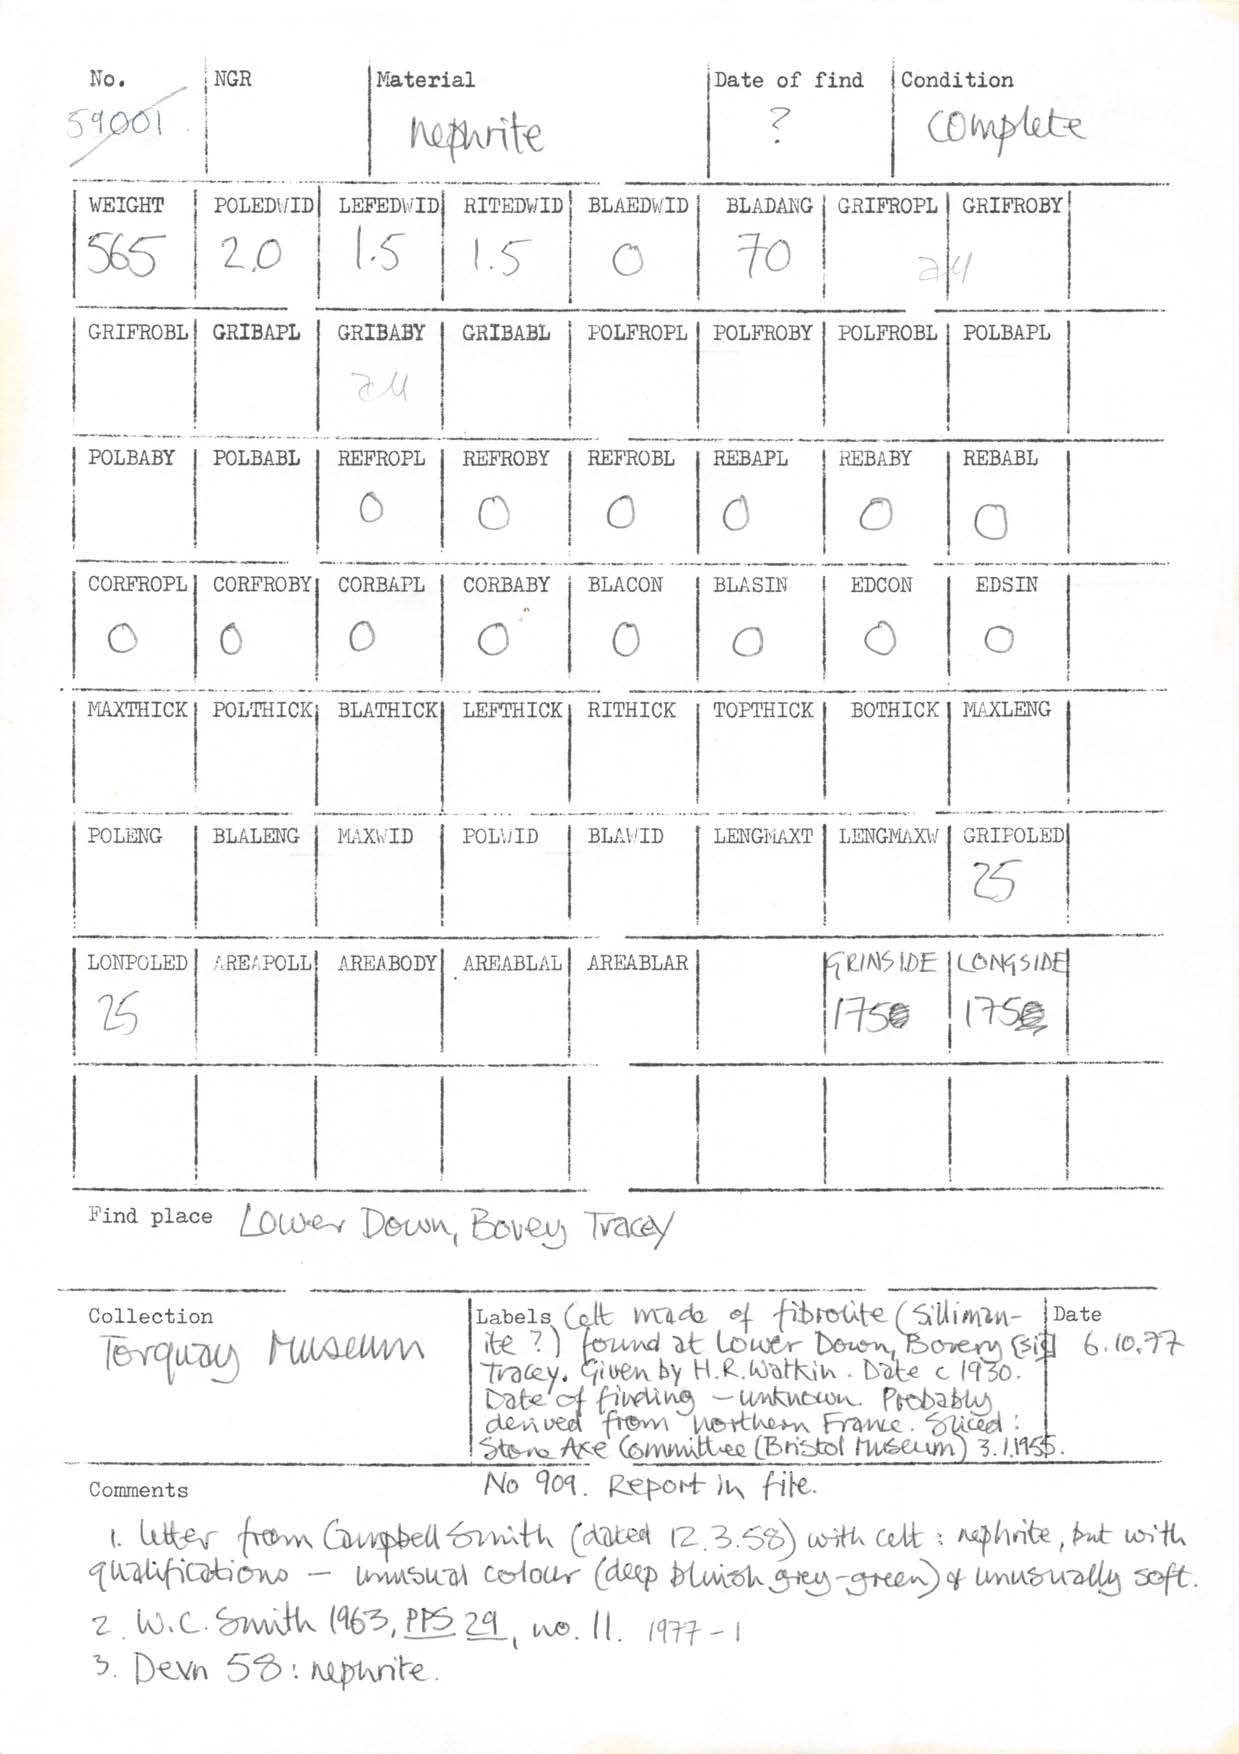 No. NGR Material Date of find Condition
59001 nephrite ? complete
WEIGHT POLEDWID LEFEDWID RITEDWID BLAEDWID BLADANG GRIFROPL GRIFROBY
565 2.0 1.5 1.5 0 70 all
GRIFROBL GRIBAPL GRIBABY GRIBABL POLFROPL POLFROBY POLFROBL POLBAPL
all
POLBABY POLBABL REFROPL REFROBY REFROBL REBAPL REBABY REBABL
0 0 0 0 0 0
CORFROPL CORFROBY CORBAPL CORBABY BLACON BLASIN EDCON EDSIN
0 0 0 0 0 0 0 0
MAXTHICK POLTHICK BLATHICK LEFTHICK RITHICK TOPTHICK BOTHICK MAXLENG
POLENG BLALENG MAXWID POLWID BLAWID LENGMAXT LENGMAXW GRIPOLED
25
LONPOLED AREAPOLL AREABODY AREABLAL AREABLAR GRINSIDE LONGSIDE
25 175 175
Find place Lower Down, Bovey Tracey
Collection
Torquay Museum
Labels Celt made of fibrolite (Silliman-
ite ?) found at Lower Down, Bovery (sic)
Tracey. Given by H.R. Watkin. Date c 1930.
Date of finding – unknown. Probably
derived from northern France. Sliced:
Stone Axe Committee (Bristol Museum) 3.1.1955.
No 909. Report in file.
Date
6.10.77
Comments
1. letter from Campbell Smith (dated 12.3.58) with celt : nephrite, but with
qualifications – unusual colour (deep bluish grey-green) & unusually soft.
2. W.C. Smith 1963, PPS 29, no. 11. 1977-1
3. Devn 58 : nephrite.